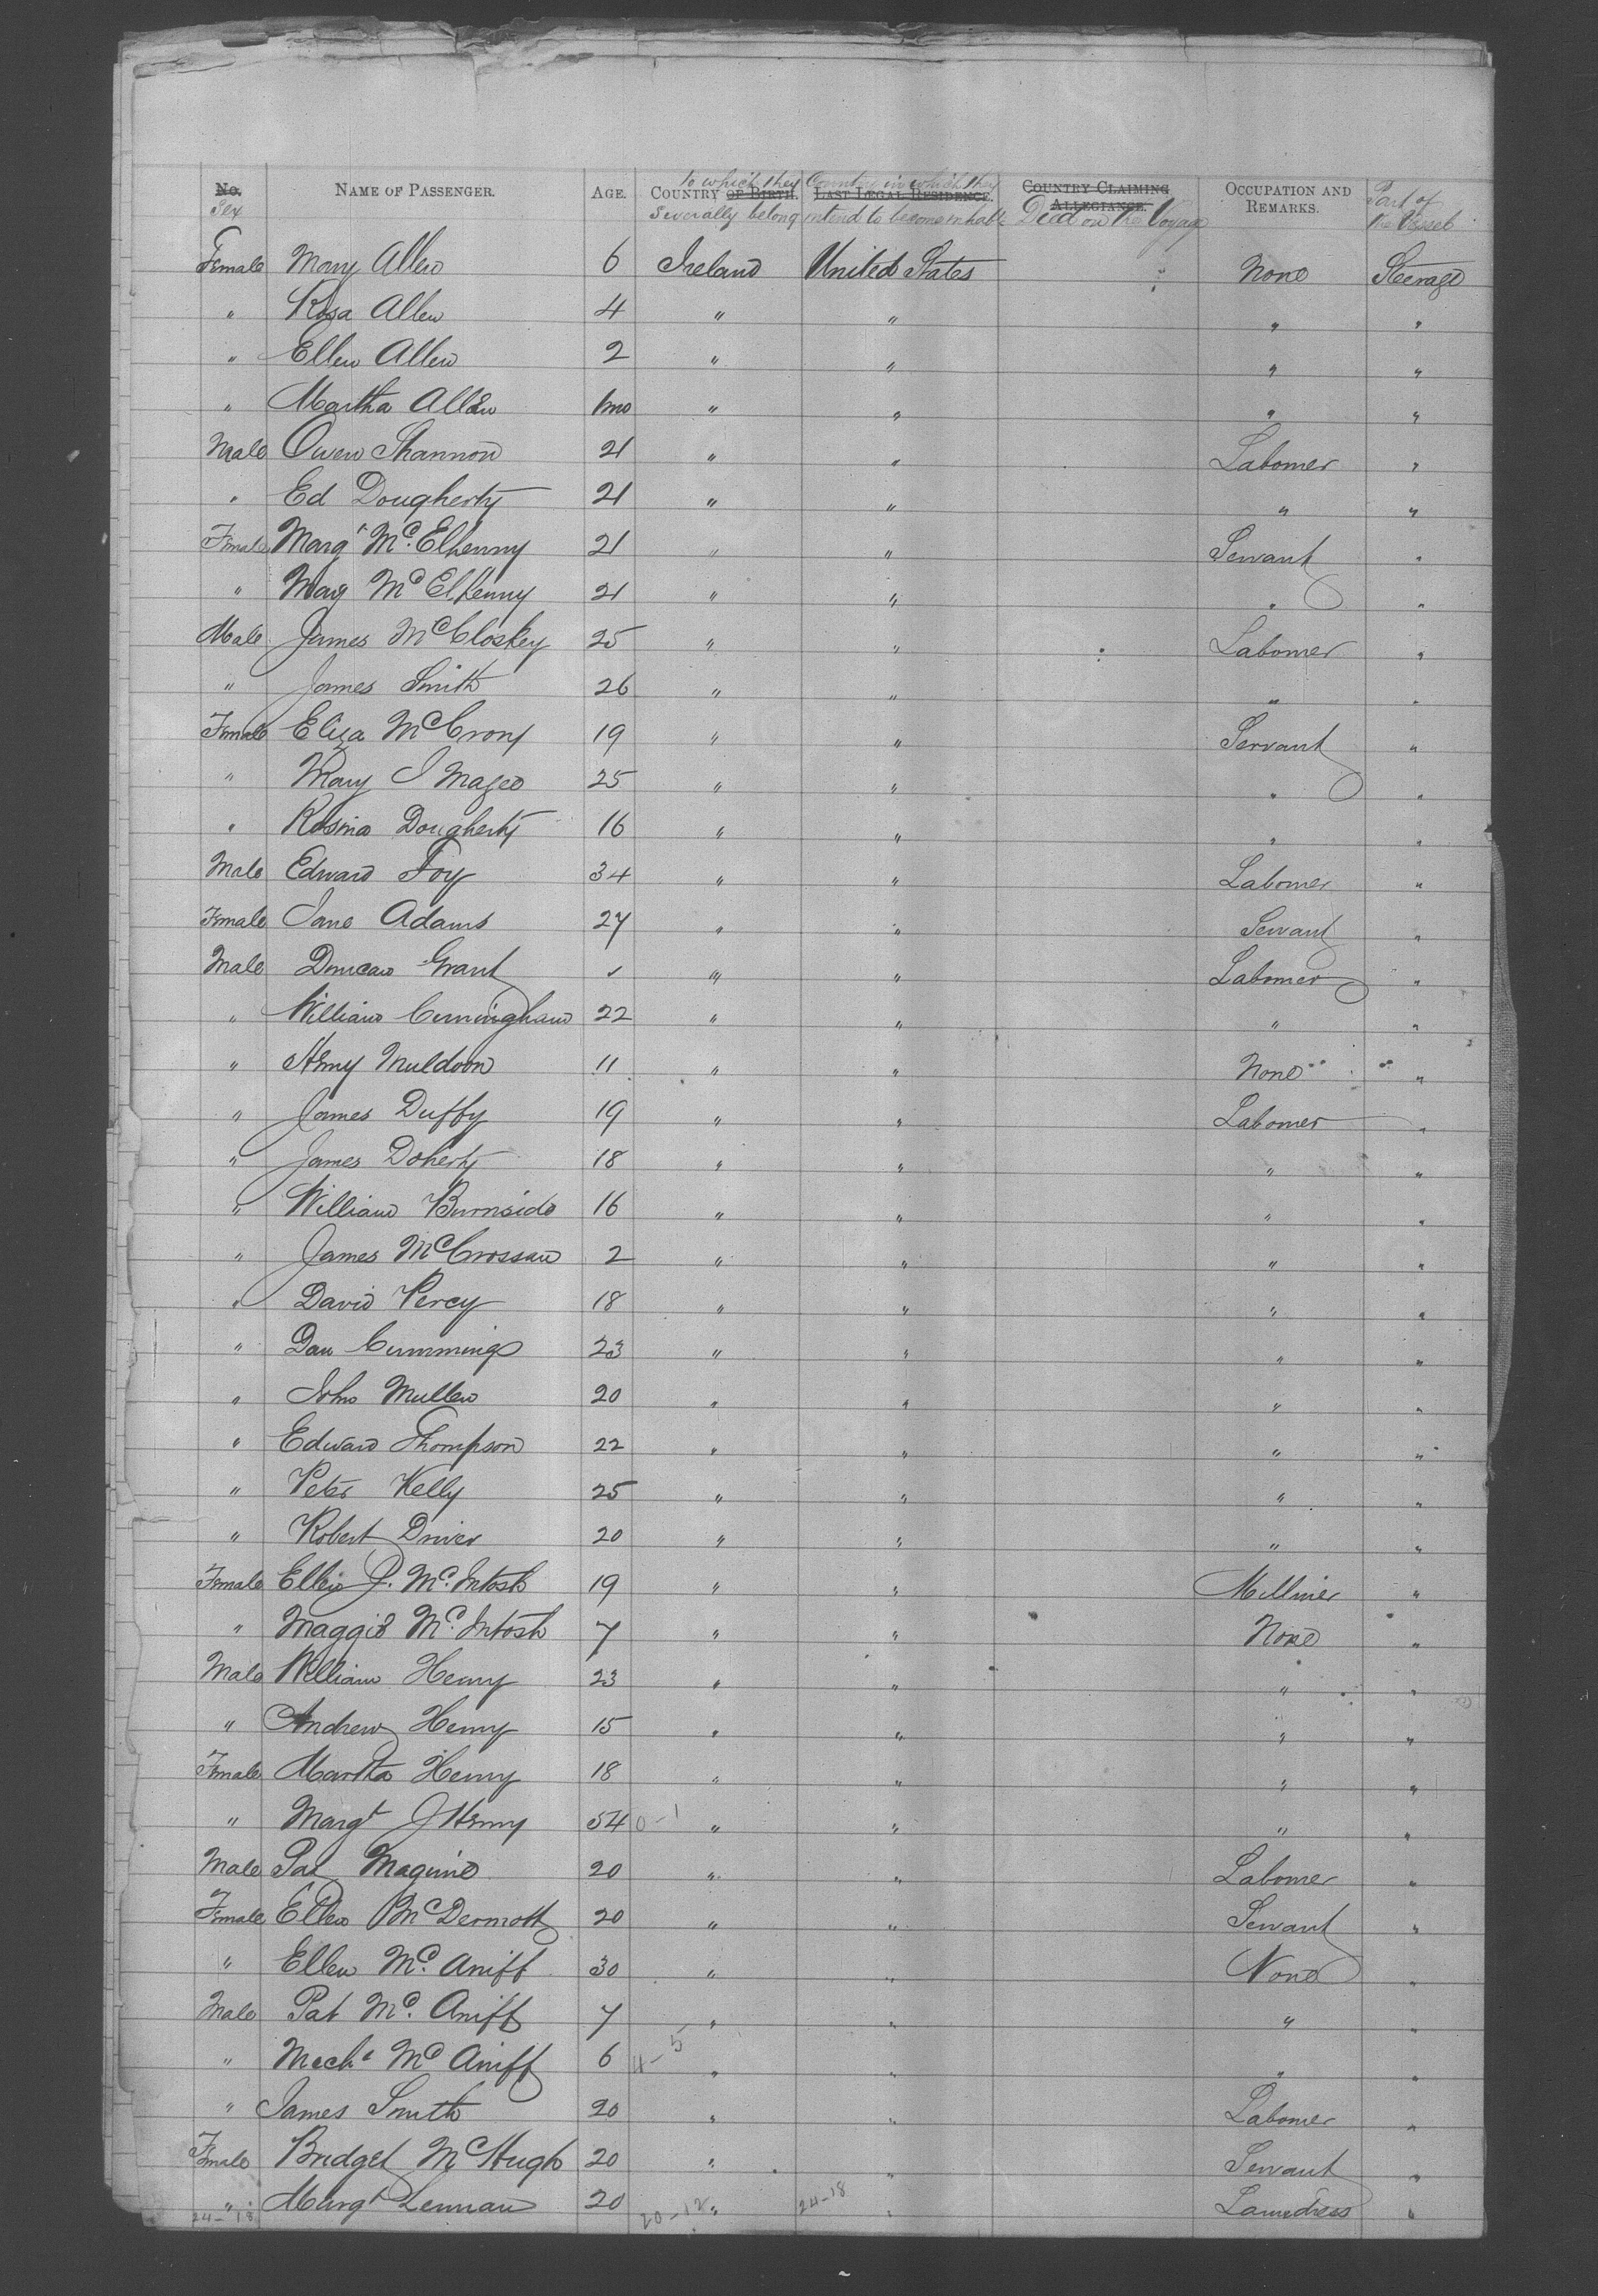 No. NAME OF PASSENGER. AGE. COUNTRY OF BIRTH. LAST LEGAL RESIDENCE. COUNTRY CLAIMING ALLEGIANCE. OCCUPATION AND REMARKS.
Sex to which they severally belong Country in which they intend to become inhabt Died on the Voyage Part of the Vessel
Female Mary Allen 6 Ireland United States None Steerage
" Rosa Allen 4 " " " "
" Ellen Allen 2 " " " "
" Martha Allen 1mo " " " "
Male Owen Shannon 21 " " Labomer "
" Ed Dougherty 21 " " " "
Female Margt McElhenny 21 " " Servant "
" May McElhenny 21 " " " "
Male James McCloskey 25 " " Labomer "
" James Smith 26 " " " "
Female Eliza McCrory 19 " " Servant "
" Mary J Magee 25 " " " "
" Rosina Dougherty 16 " " " "
Male Edward Foy 34 " " Labomer "
Female Jane Adams 27 " " Servant "
Male Duncan Grant " " Labomer "
" William Cuningham 22 " " " "
" Henry Muldoon 11 " " None "
" James Duffy 19 " " Labomer "
" James Doherty 18 " " " "
" William Burnside 16 " " " "
" James McCrossan 2 " " " "
" David Percy 18 " " " "
" Dan Cummings 23 " " " "
" John Mullen 20 " " " "
" Edward Thompson 22 " " " "
" Peter Kelly 25 " " " "
" Robert Driver 20 " " " "
Female Ellen J. McIntosh 19 " " Milliner "
" Maggie McIntosh 7 " " None "
Male William Henry 23 " " " "
" Andrew Henry 15 " " " "
Female Martha Henry 18 " " " "
" Margt J Henry 54 0-1 " " " "
Male Pat Maguire 20 " " Labomer "
Female Ellen McDermott 20 " " Servant "
" Ellen McAniff 30 " " None "
Male Pat McAniff 7 " " " "
" Mechl McAniff 6 4-5 " " " "
" James Smith 20 " " Labomer "
Female Bridget McHugh 20 " " Servant "
" Margt Lennan 20 " " Laundress "
24-18 20-12 24-18